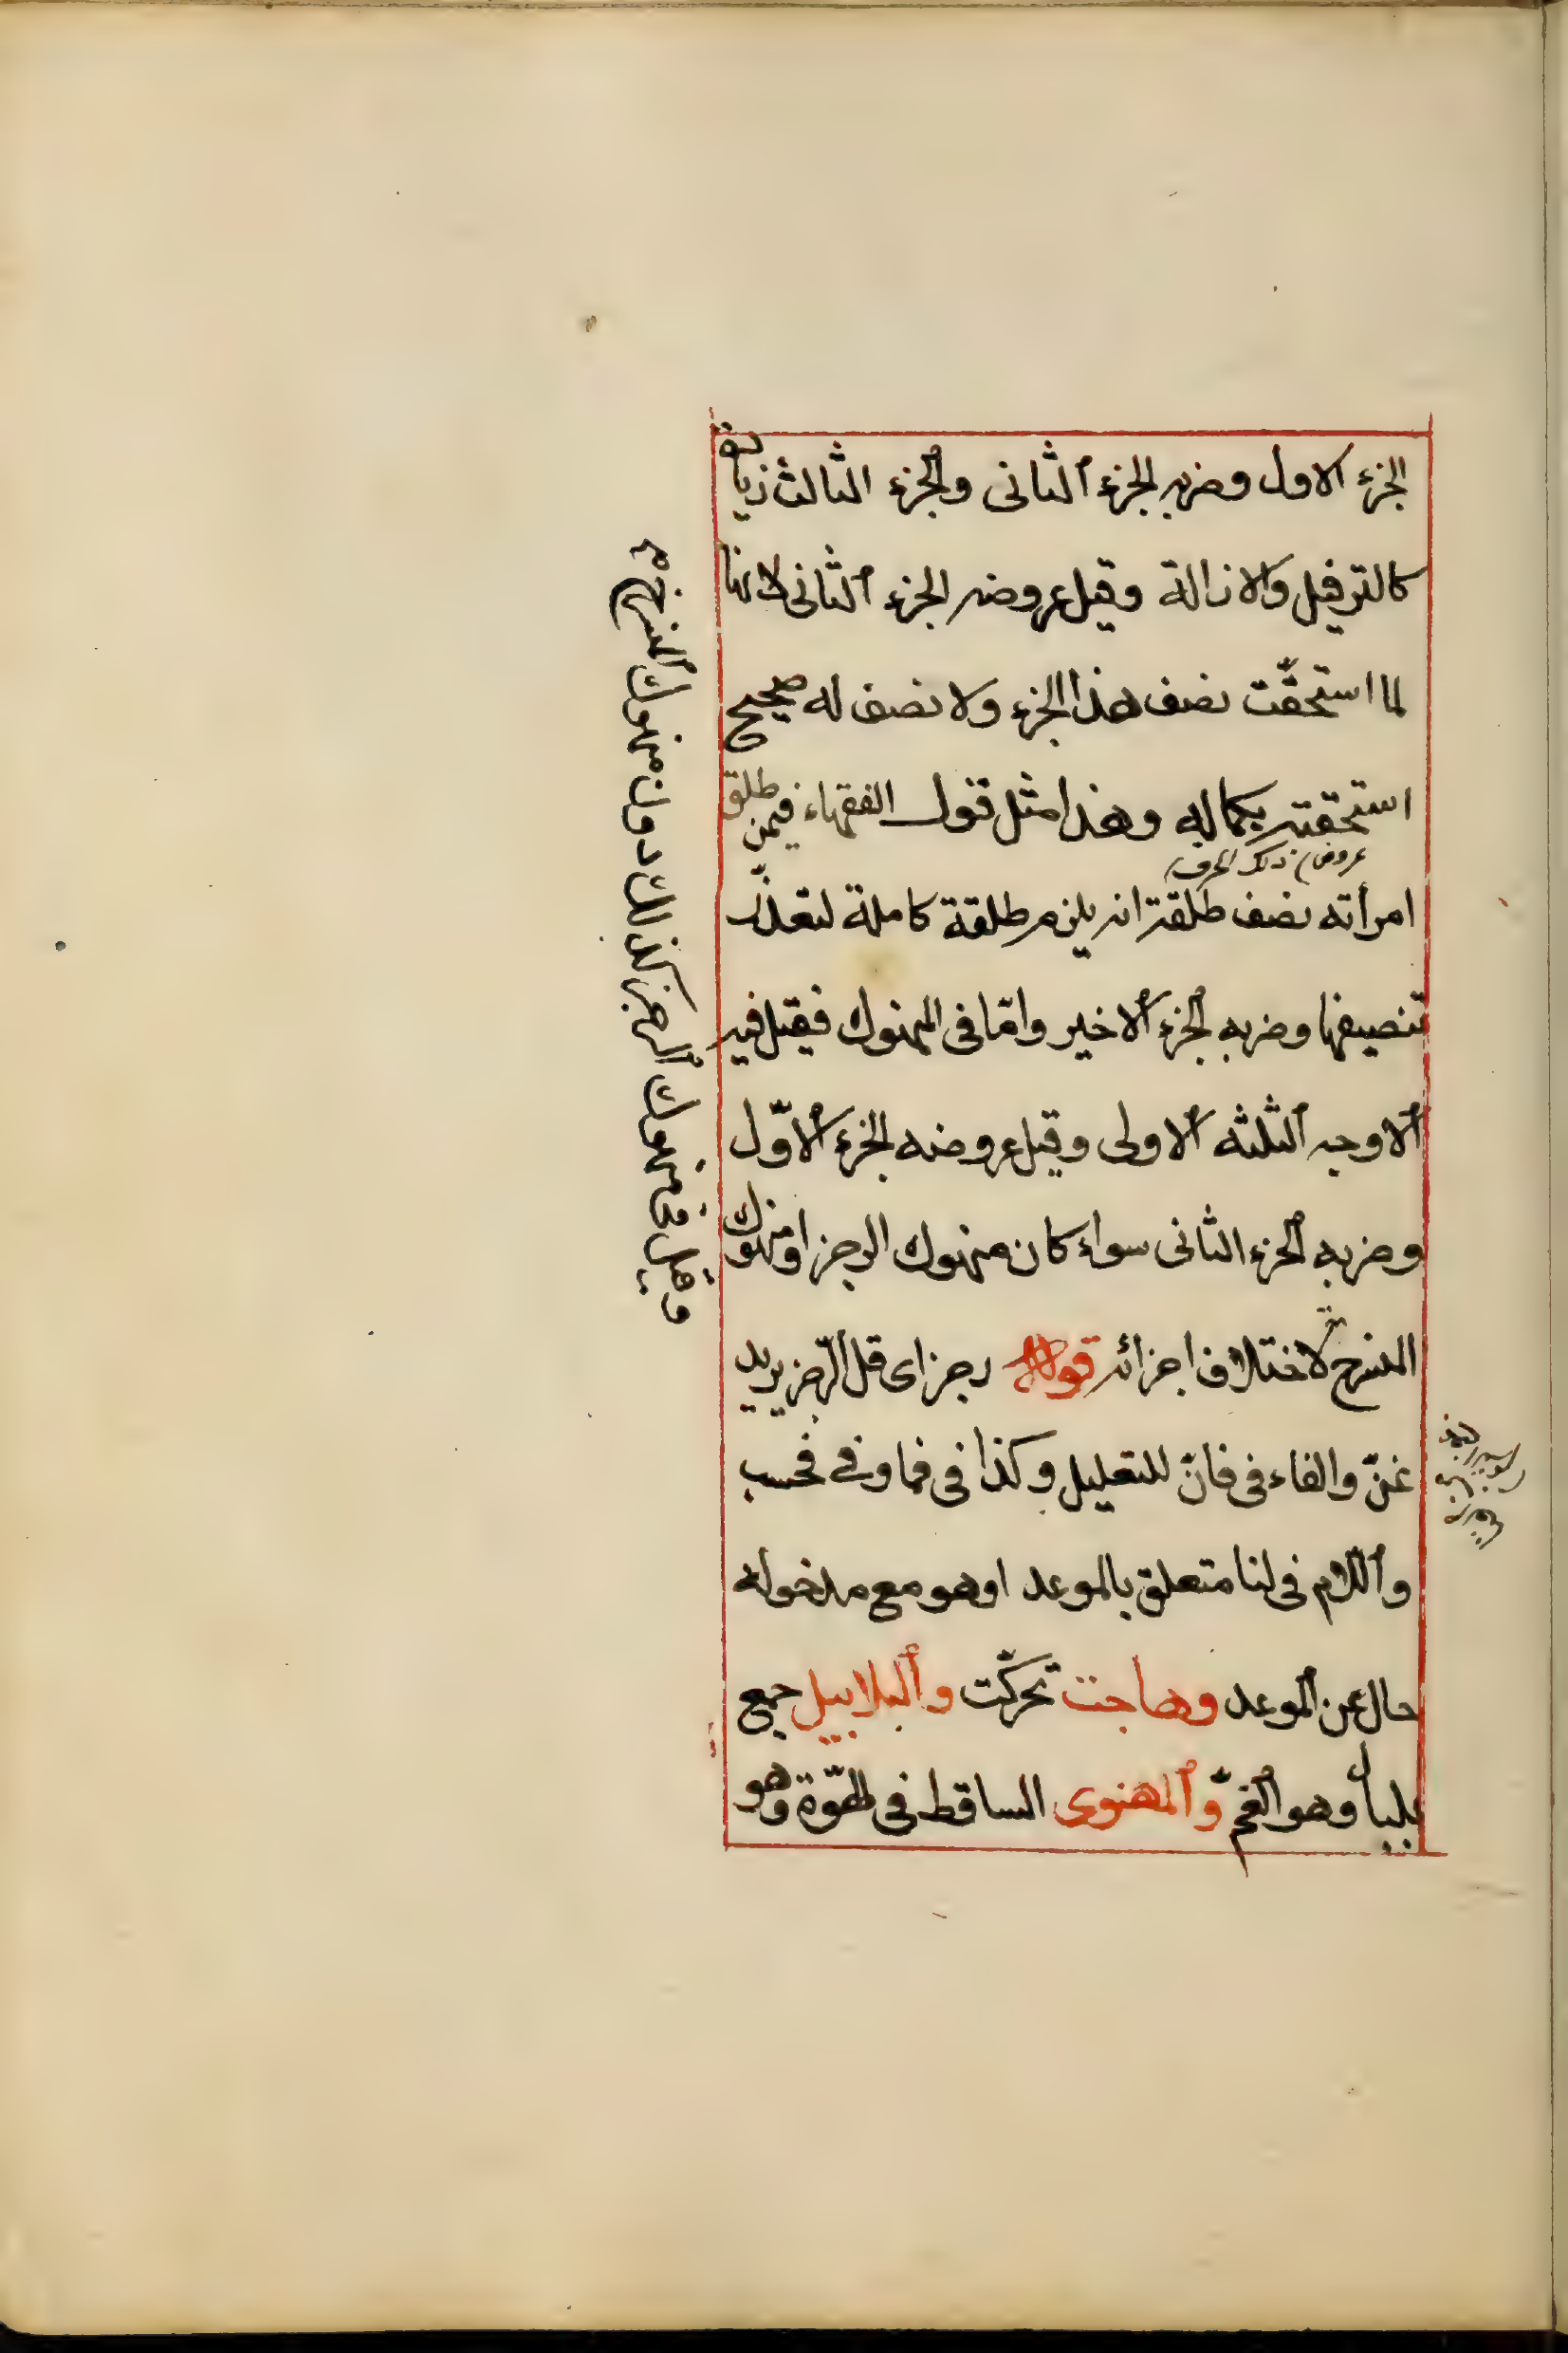 الجزء الاول وضربه الجزء الثانى والجزء الثالث زيادة
كالترفيل والاذالة وقيل عروضه الجزء الثانى لانها
لما استحقّت نصف هذا الجزء ولا نصف له صحيح
استحقته بكماله وهذا مثل قول الفقهاء فيمن طلق
امرأته نصف طلقة انه يلزم طلقة كاملة لتعذّر
تنصيفها وضربه الجزء الاخير وامّا فى المنهوك فقيل فيه
الاوجه الثلثه الاولى وقيل عروضه الجزء الاوّل
وضربه الجزء الثانى سواء كان منهوك الرجز او منهوك
المنسرح لاختلاف اجزائه قوله رجز اى قل الرّجز يريد
غنّ والفاء فى فانّ للتعليل وكذا فى فما وفى فحسب
واللام فى لنا متعلق بالموعد او هو مع مدخوله
حال عن الموعد وهاجت تحركّت والبلابيل جمع
بلبال وهو الغمّ والمهنوى الساقط فى الهوّة وهو
وقيل فى منهوك الرجز كذلك دون منهوك المنسرح